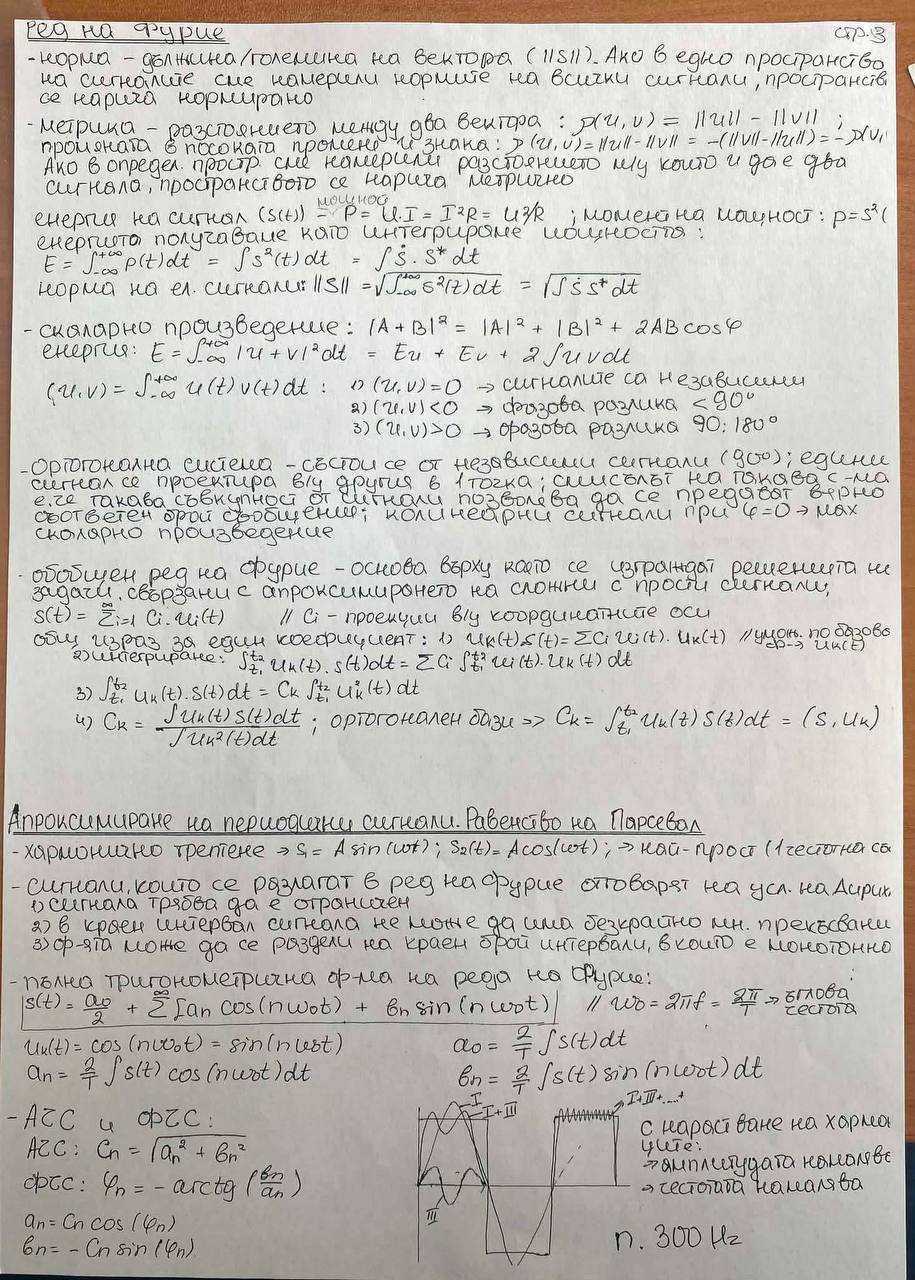 Ред на Фурие
стр.3
- норма - дължина/големина на вектора (||S||). Ако в едно пространство
на сигналите сме намерили нормите на всички сигнали, пространств
се нарича нормирано
- метрика - разстоянието между два вектора : ρ(u,v) = ||u|| - ||v|| ;
промяната в посоката променя и знака: ρ(u,v)=||u||-||v|| = -(||v||-||u||) = -ρ(v,
Ако в определ. простр. сме намерили разстоянието м/у които и да е два
сигнала, пространството се нарича метрично
мощнос
енергия на сигнал (s(t)) - P = U.I = I²R = U²/R ; моментна мощност: p=s²(
енергията получаваме като интегрираме мощността:
E = ∫₋∞⁺∞ p(t)dt = ∫s²(t)dt = ∫ṡ.s*dt
норма на ел. сигнали: ||S|| = √∫₋∞⁺∞ s²(t)dt = √∫ṡ s*dt
- скаларно произведение: |A+B|² = |A|² + |B|² + 2ABcosφ
енергия: E = ∫₋∞⁺∞ |u+v|²dt = Eu + Ev + 2∫uvdt
(u,v) = ∫₋∞⁺∞ u(t)v(t)dt : 1) (u,v)=0 → сигналите са независими
2) (u,v)<0 → фазова разлика <90°
3) (u,v)>0 → фазова разлика 90:180°
- Ортогонална система - състои се от независими сигнали (90°); едини
сигнал се проектира в/у другия в 1 точка; смисълът на такава с-ма
е, че такава съвкупност от сигнали позволява да се предават вярно
съответен брой съобщения; колинеарни сигнали при φ=0 → мах
скаларно произведение
- обобщен ред на Фурие - основа върху която се изграждат решенията на
задачи, свързани с апроксимирането на сложни с прости сигнали;
s(t) = Σ∞i=1 Ci.ui(t) // Ci - проекции в/у координатните оси
общ израз за един коефициент: 1) uk(t)s(t)=ΣCi ui(t).uk(t) // умнож. по базова
ф-я → uk(t)
2) интегриране: ∫t₁t² uk(t).s(t)dt = ΣCi ∫t₁t² ui(t).uk(t)dt
3) ∫t₁t² uk(t).s(t)dt = Ck ∫t₁t² uk²(t)dt
4) Ck = ∫uk(t)s(t)dt / ∫uk²(t)dt ; ортогонален бази => Ck = ∫t₁t² uk(t)s(t)dt = (s,uk)
Апроксимиране на периодични сигнали. Равенство на Парсевал
- хармонично трептене → S₁ = Asin(ωt); S₂(t)=Acos(ωt); → най-прост (1 честотна съ
- сигнали, които се разлагат в ред на Фурие отговарят на усл. на Дирих
1) сигнала трябва да е ограничен
2) в краен интервал сигнала не може да има безкрайно мн. прекъсвани
3) ф-ята може да се раздели на краен брой интервали, в които е монотонно
- пълна тригонометрична ф-ма на реда на Фурие:
s(t) = a₀/2 + Σ∞[an cos(nω₀t) + bn sin(nω₀t) // ω₀ = 2πf = 2π/T → ъглова
честота
uk(t) = cos(nω₀t) = sin(nω₀t) a₀ = 2/T ∫s(t)dt
an = 2/T ∫s(t) cos(nω₀t)dt bn = 2/T ∫s(t)sin(nω₀t)dt
- АЧС и ФЧС:
АЧС: Cn = √an² + bn²
ФЧС: φn = - arctg (bn/an)
an = Cn cos(φn)
bn = - Cn sin(φn)
I
I+III
I+III+....+
III
с нарастване на хармо
ците:
→ амплитудата намалява
→ честотата намалява
п. 300 Hz